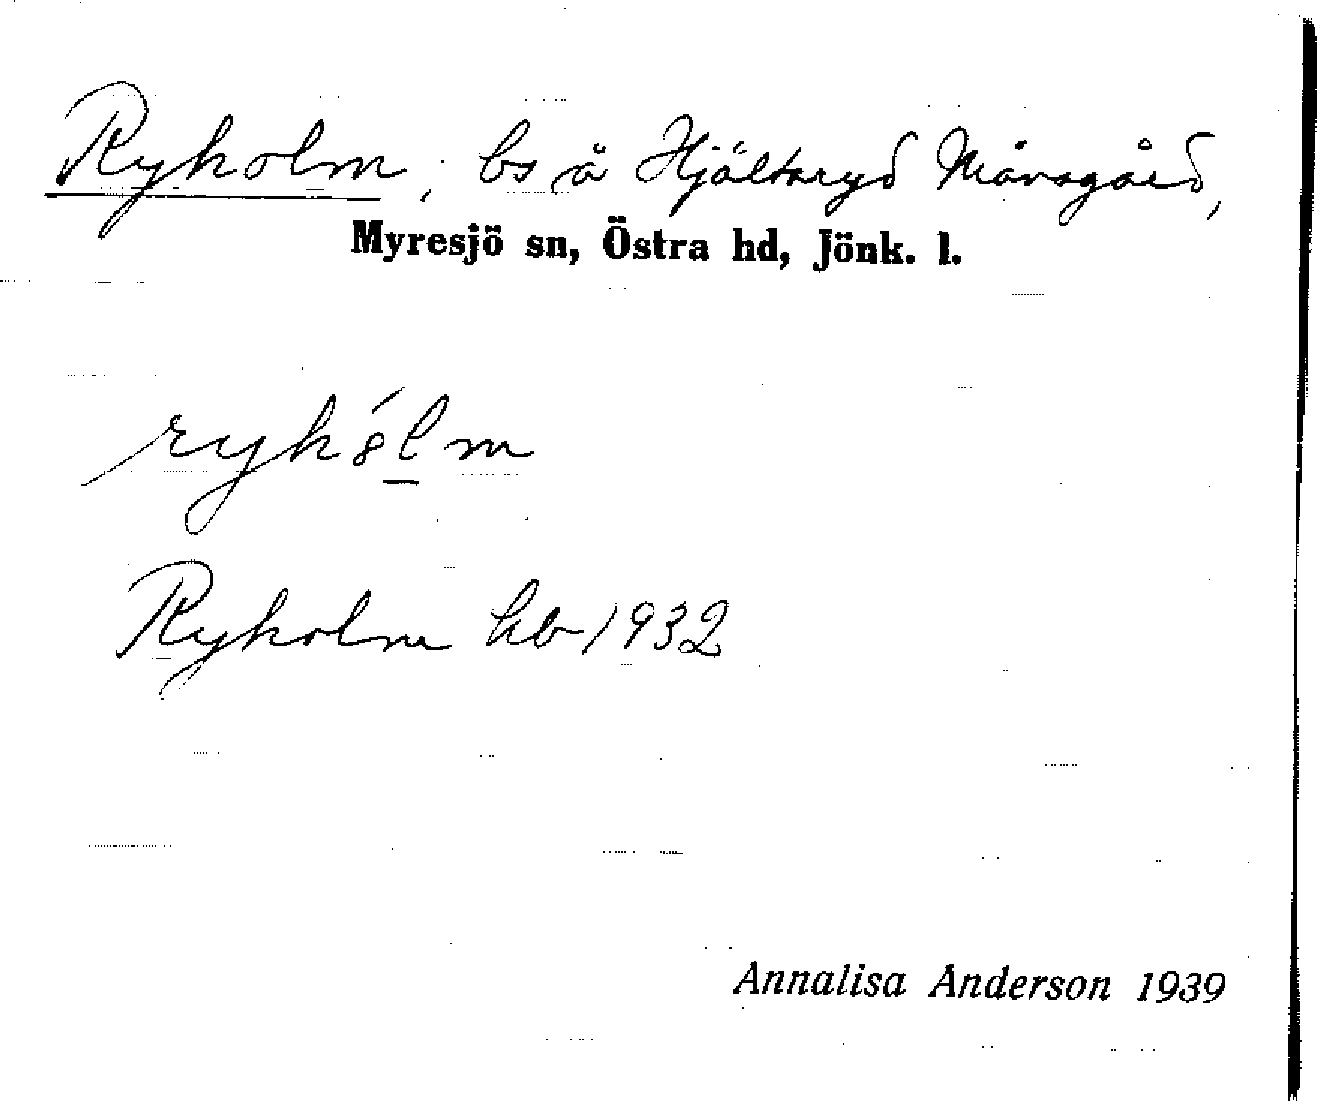 Ryholm, bs å Hjältaryd Månsgård,
Myresjö sn, Östra hd, Jönk. l.
Ryholm hb 1932
Annalisa Anderson 1939